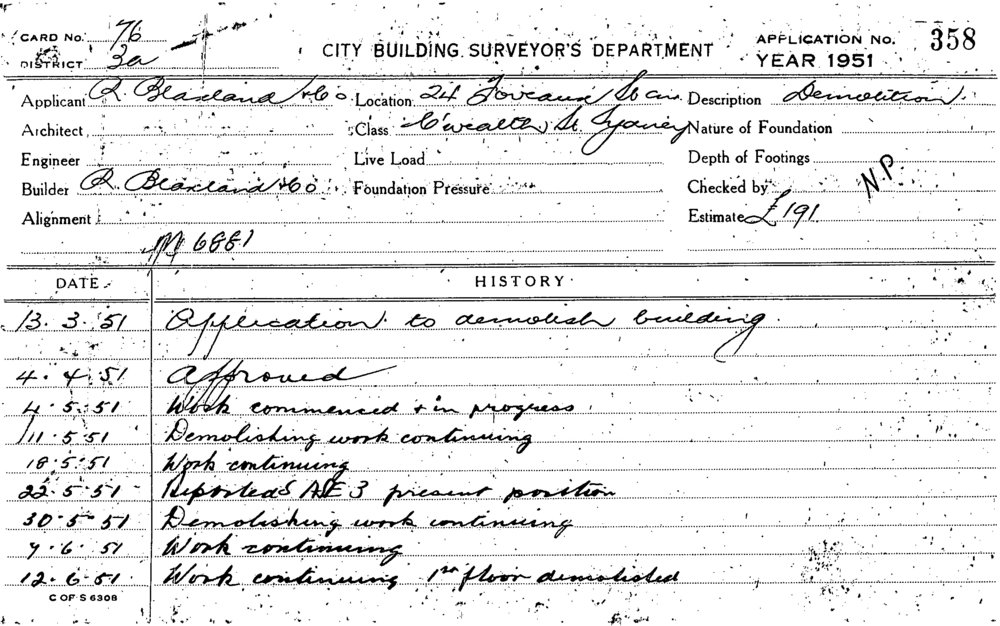 CARD No. 76
DISTRICT 3a
CITY BUILDING SURVEYOR'S DEPARTMENT
APPLICATION No. 358
YEAR 1951
Applicant R Blaxland & Co Location 24 Foveaux St Description Demolition
Architect Class C'wealth St Sydney Nature of Foundation
Engineer Live Load Depth of Footings
Builder R Blaxland & Co Foundation Pressure Checked by N.P.
Alignment Estimate £191
M 6881
DATE HISTORY
13.3.51 Application to demolish building
4.4.51 Approved
4.5.51 Work commenced & in progress
11.5.51 Demolishing work continuing
18.5.51 Work continuing
22.5.51 Reported 3 present position
30.5.51 Demolishing work continuing
7.6.51 Work continuing
12.6.51 Work continuing 1st floor demolished
C OF S 6308